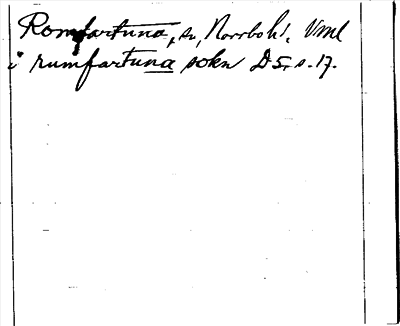 Romfartuna, sn, Norrbo hd. Vml
i rumfartuna sokn D 5, s. 17.